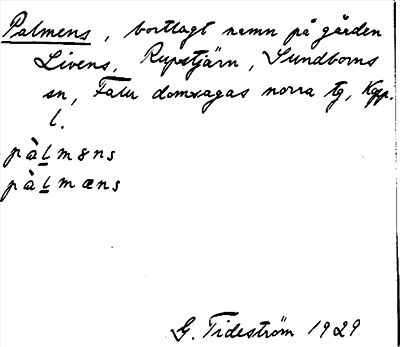 Palmens, bortlagt namn på gården
Livens, Rupstjärn, Sundborns
sn, Falu domsagas norra tg, Kopp.
l.
pàlməns
pàlmæns
G. Tideström 1929